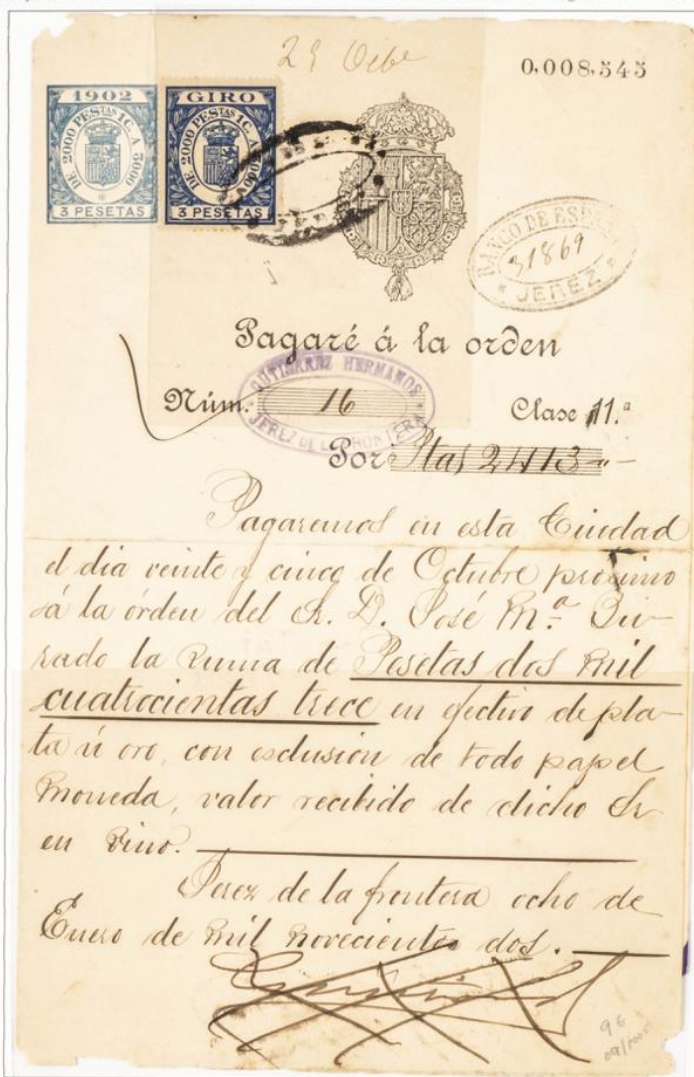 29 Octbe
0,008,545
1902
DE 2000 PESTAS 1C. A 3000
3 PESETAS
GIRO
DE 2000 PESTAS 1C. A 3000
3 PESETAS
BANCO DE ESPAÑA
31869
JEREZ
Pagaré á la orden
GUTIERREZ HERMANOS
Núm. 16 Clase 11.ª
JEREZ DE LA FRONTERA
Por Ptas 2413
Pagaremos en esta Ciudad
el dia veinte y cinco de Octubre próximo
á la órden del Sr. D. José Mª.
rado la suma de Pesetas dos mil
cuatrocientas trece en efectivo de pla-
ta ú oro, con esclusión de todo papel
moneda, valor recibido de dicho Sr
en vino.
Jerez de la frontera ocho de
Enero de mil novecientos dos.